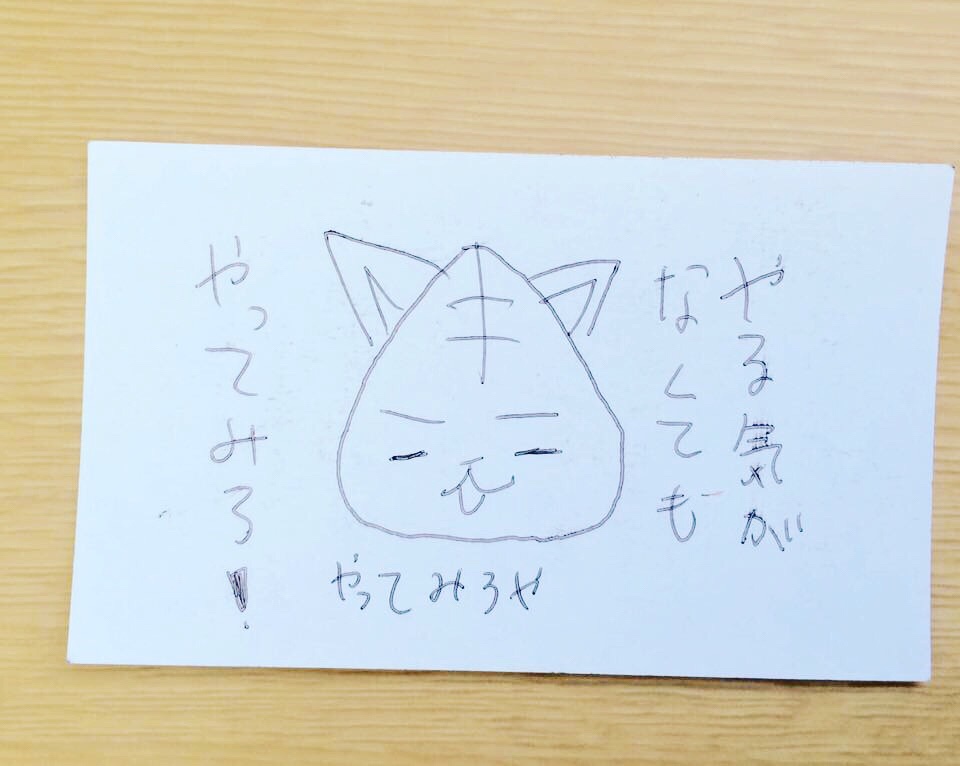 やる気が
なくても
やってみろ!
やってみろや